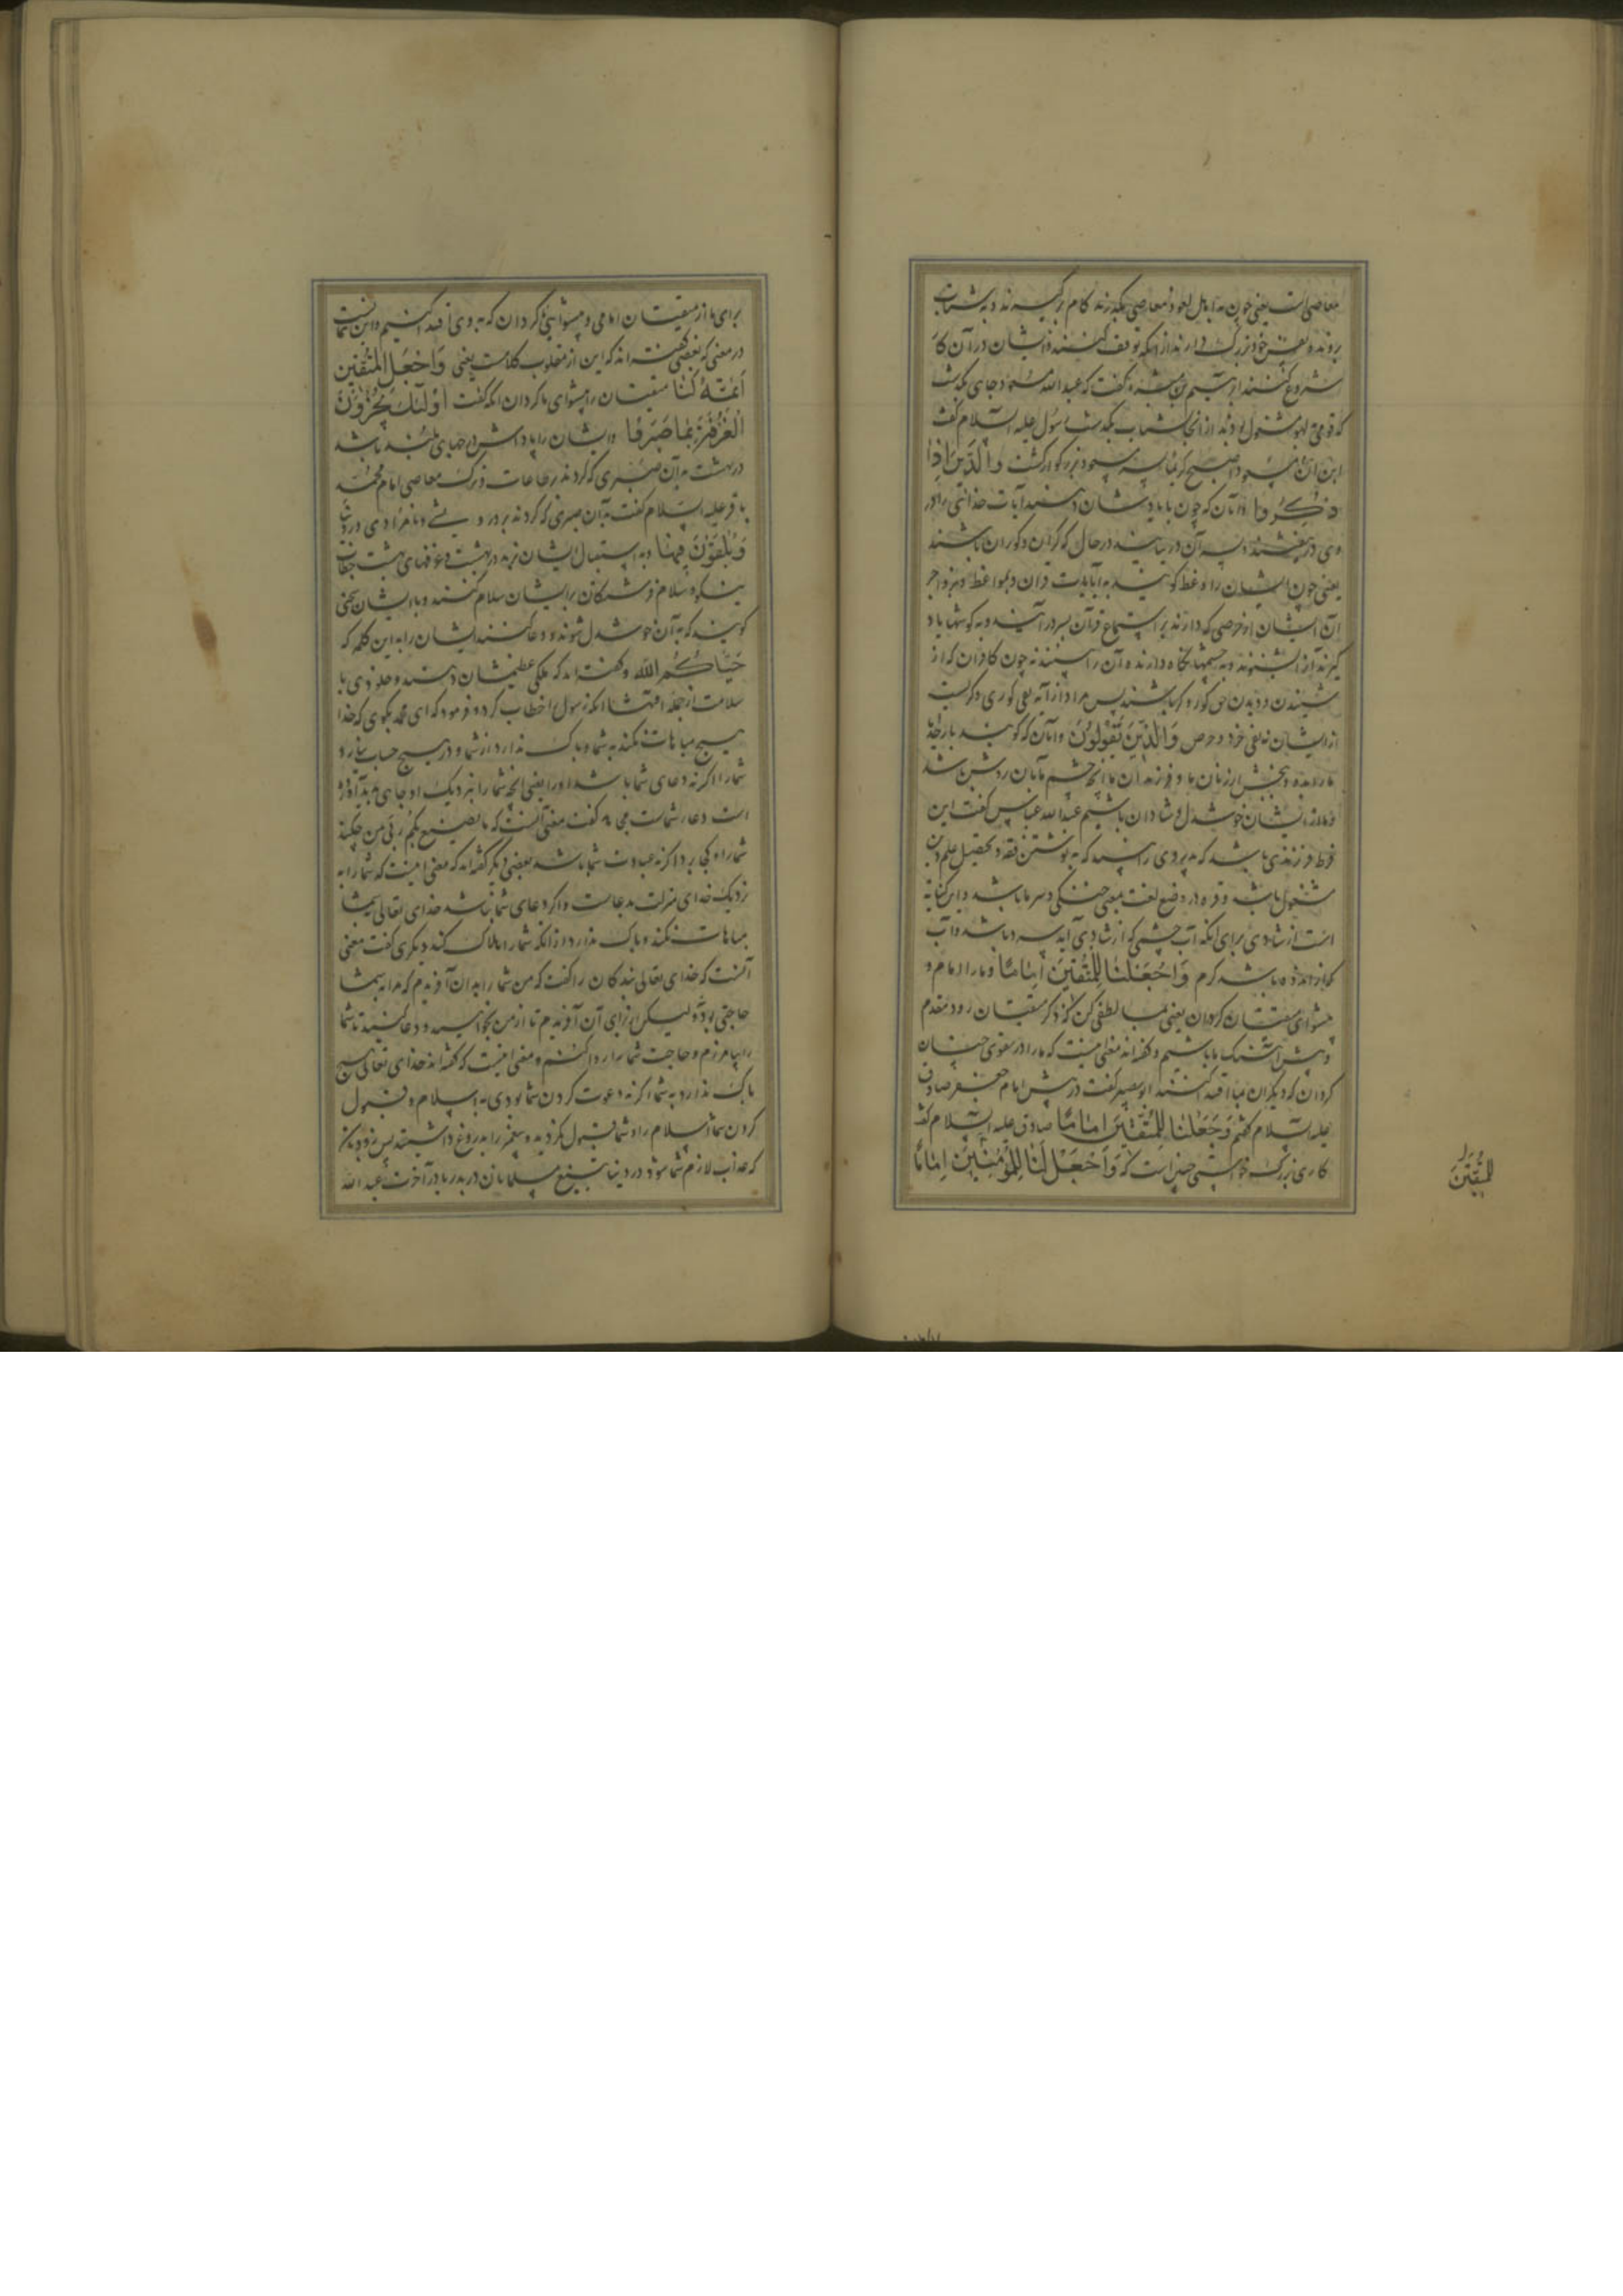 معاصی است یعنی چون به اهل لغو و معاصی بگذرند گام برگیرند و به شتاب
روند و نفس خود بزرگ دارند از آنکه توقف کنند و ایشان در آن کار
شروع کنند ابرهیم بن میسره گفت که عبد الله مسعود جای بگذشت
که قومی بلهو مشغول بودند از آنجا بشتاب بگذشت رسول علیه السلام گفت
ابن ام مسعود اصبح کریما پسر مسعود بزرگوار گشت وَالَّذِينَ اِذَا
ذُكِّرُوا و آنان که چون با یاد ایشان دهند آیات خدا
وی در نیفتند به آن در نیایند در حال که کران و کوران باشند
یعنی چون ایشان را وعظ گویند به آیات قرآن و بمواعظ و بزواجر
آن ایشان از حرصی که دارند بر استماع قرآن بسر در آیند و به گوشها یاد
گیرند آنرا بشنوند و به چشمها نگاه دارنده آن را بینند نه چون کافران که از
شنیدن و دیدن حق کور و کر باشند پس مراد از آیه نفی کوری و کریست
از ایشان نه نفی خرد و حرص وَالَّذِينَ يَقُولُونَ و آنان که گویند بار خدایا
ما را بده و ببخش از زنان ما و فرزندان ما آنچه چشم ما بآن روشن باشد
و ما از ایشان خوشدل و شادان باشیم عبد الله عباس گفت این
قرط فرزندی باشد که پدر وی را بیند که به نوشتن فقه و تحصیل علم دین
مشغول باشد و قره در وضع لغت بمعنی خنکی و سرما باشد و این کنایه
است از شادی برای آنکه آب چشمی که از شادی آید سرد باشد و آب
که از اندوه باشد گرم وَاجْعَلْنَا لِلْمُتَّقِينَ اِمَامًا و ما را امام و
پیشوای متقیان گردان یعنی بما لطفی کن که در متقیان رود مقدم
و پیش آهنگ ما باشیم و گفته‌اند معنی اینست که ما را در تقوی چنان
گردان که دیگران بما اقتدا کنند ابو بصیر گفت در پیش امام جعفر صادق
علیه السلام گفتم وَجَعَلْنَا لِلْمُتَّقِينَ اِمَامًا صادق علیه السلام گفت
کاری بزرگ خواستی چنین است که وَاجْعَلْ لَنَا لِلْمُؤْمِنِينَ اِمَامًا
للمتقین
برای ما از متقیان امامی و پیشوایی گردان که به وی اقتدا کنیم و این
در معنی که بعضی گفته‌اند که این از مقلوب کلامست یعنی وَاجْعَلِ الْمُتَّقِينَ
اَئِمَّةً لَنَا متقیان را پیشوای ما گردان آنگه گفت اُولٰئِكَ يُجْزَوْنَ
الْغُرْفَةَ بِمَا صَبَرُوا و ایشان را پاداش درجهای بلند باشد
در بهشت به آن صبری که کردند بر طاعات و ترک معاصی امام محمد
باقر علیه السلام گفت به آن صبری که کردند بر درویشی و نامرادی در دنیا
وَيُلَقَّوْنَ فِيهَا و به استقبال ایشان برند در بهشت و غرفهای بهشت تحیات
نیکو و سلام فرشتگان بر ایشان سلام کنند و با ایشان سخنی
گویند که به آن خوشدل شوند و دعا کنند ایشان را به این کلمه که
حَيَّاكُمُ اللّٰه و گفته‌اند که ملکی عظیمشان دهند و خلودی با
سلامت از جمله آفتها آنگه رسول را خطاب کرد و فرمود که ای محمد بگوی که خدا
هیچ مباهات نکند به شما و باک ندارد از شما و در هیچ حساب نیارد
شما را اگر نه دعای شما باشد او را یعنی آنچه شما را بنزدیک او جاهی پدید آورده
است دعاء شماست مجاهد گفت معنی آنست که ما یصنع بکم ربی من چکند
شما را و کجا برد اگر نه عبادت شما باشد بعضی دیگر گفته‌اند که معنی اینست که شما را به
نزدیک خدای منزلت بدعاست و اگر دعای شما نباشد خدای تعالی بشما
مباهات نکند و باک ندارد از آنکه شما را هلاک کند دیگری گفت معنی
آنست که خدای تعالی بندگان را گفت که من شما را به آن آفریدم که مرا به شما
حاجتی بود و لیکن از برای آن آفریدم تا از من بخواهید و دعا کنید تا شما
را بیامرزم و حاجت شما را روا کنم و معنی اینست که گفته‌اند خدای تعالی هیچ
باک ندارد به شما اگر نه دعوت کردن شما بودی به اسلام و قبول
کردن شما اسلام را و شما قبول نکردید و پیغمبر را بدروغ داشتید پس زود باشد
که عذاب لازم شما شود در دنیا به تیغ مسلمانان در بدر یا در آخرت عبد الله